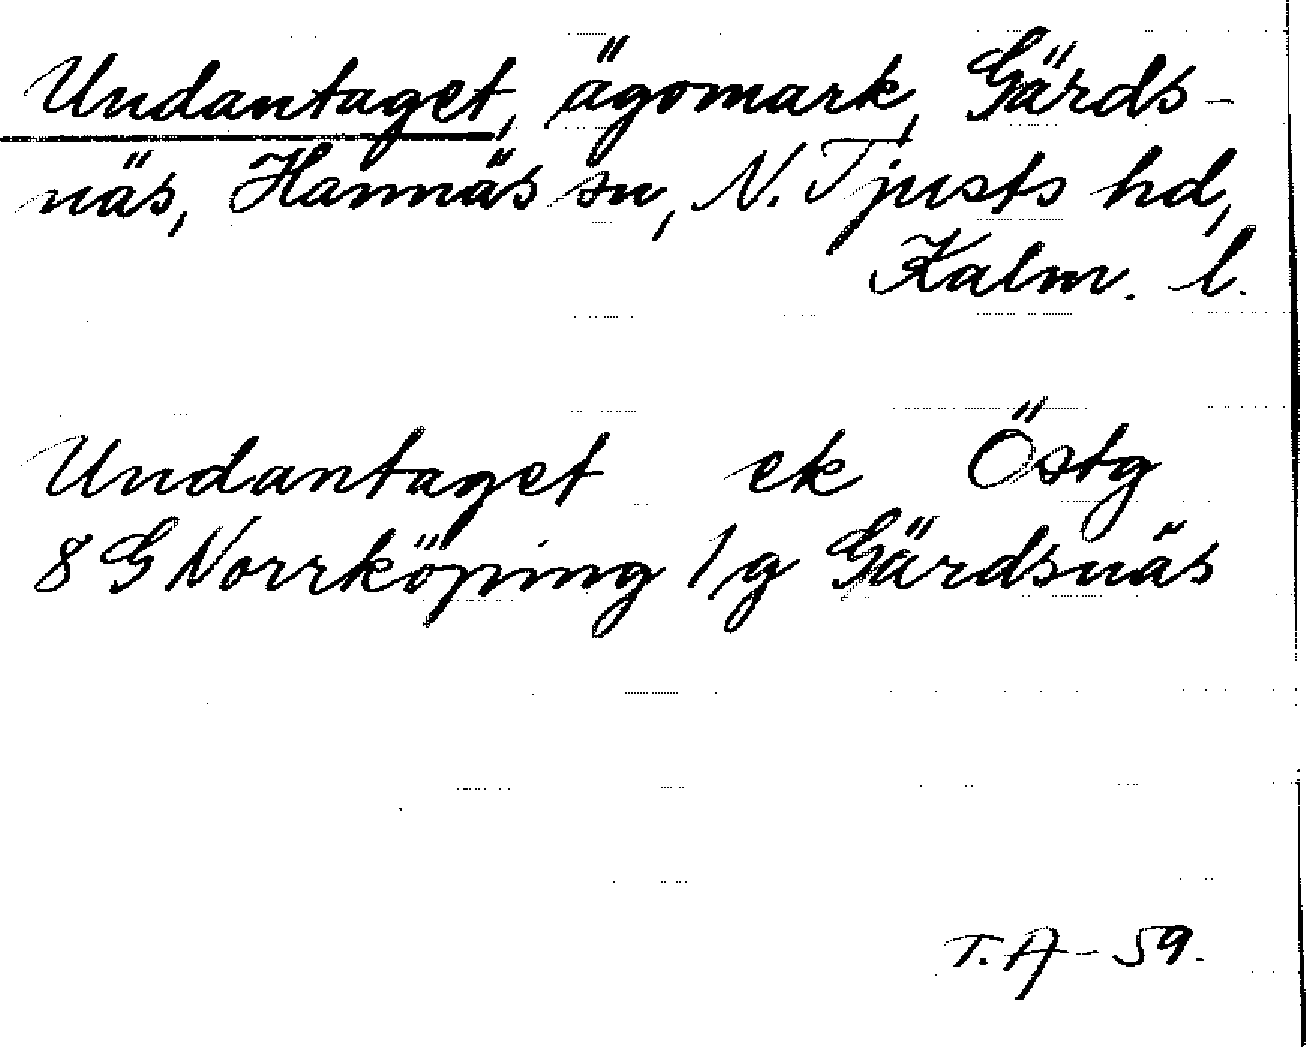 Undantaget, ägomark, Gärds-
näs, Hannäs sn, N. Tjusts hd,
Kalm. l.
Undantaget ek Östg
8 G Norrköping 1g Gärdsnäs
T. A - 59.